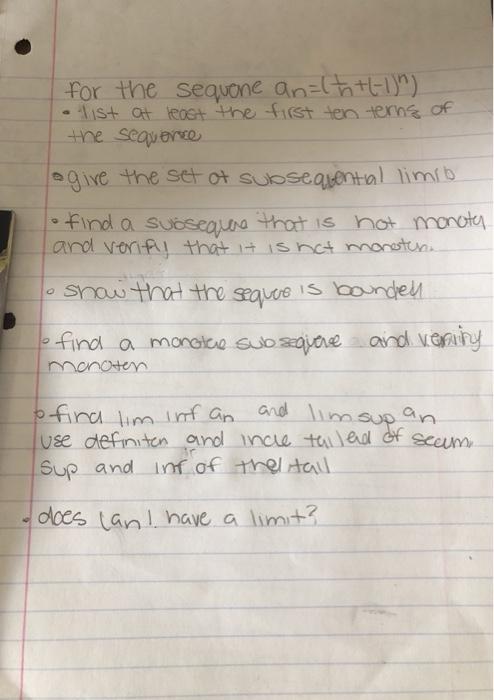 for the sequone an=(1/n+(-1)^n)
• list at least the first ten terms of
the sequence
• give the set of subsequental limis
• find a subseque that is not monoty
and verify that it is not monoton.
• show that the sequce is bounded
• find a monotue subsequare and verifiry
monoten
• find lim inf an and lim sup an
use definiten and incle tailed of secum
sup and inf of the tail
• does (an) have a limit?